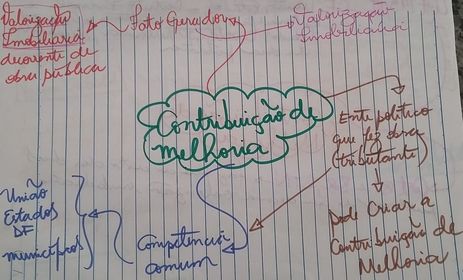 Valorização
Imobiliária
decorrente de
obra pública
Fato Gerador
Valorização
Imobiliária
Contribuição de
melhoria
Ente político
que fez obra
(tributante)
pode criar a
Contribuição de
Melhoria
Competência
comum
União
Estados
DF
municípios